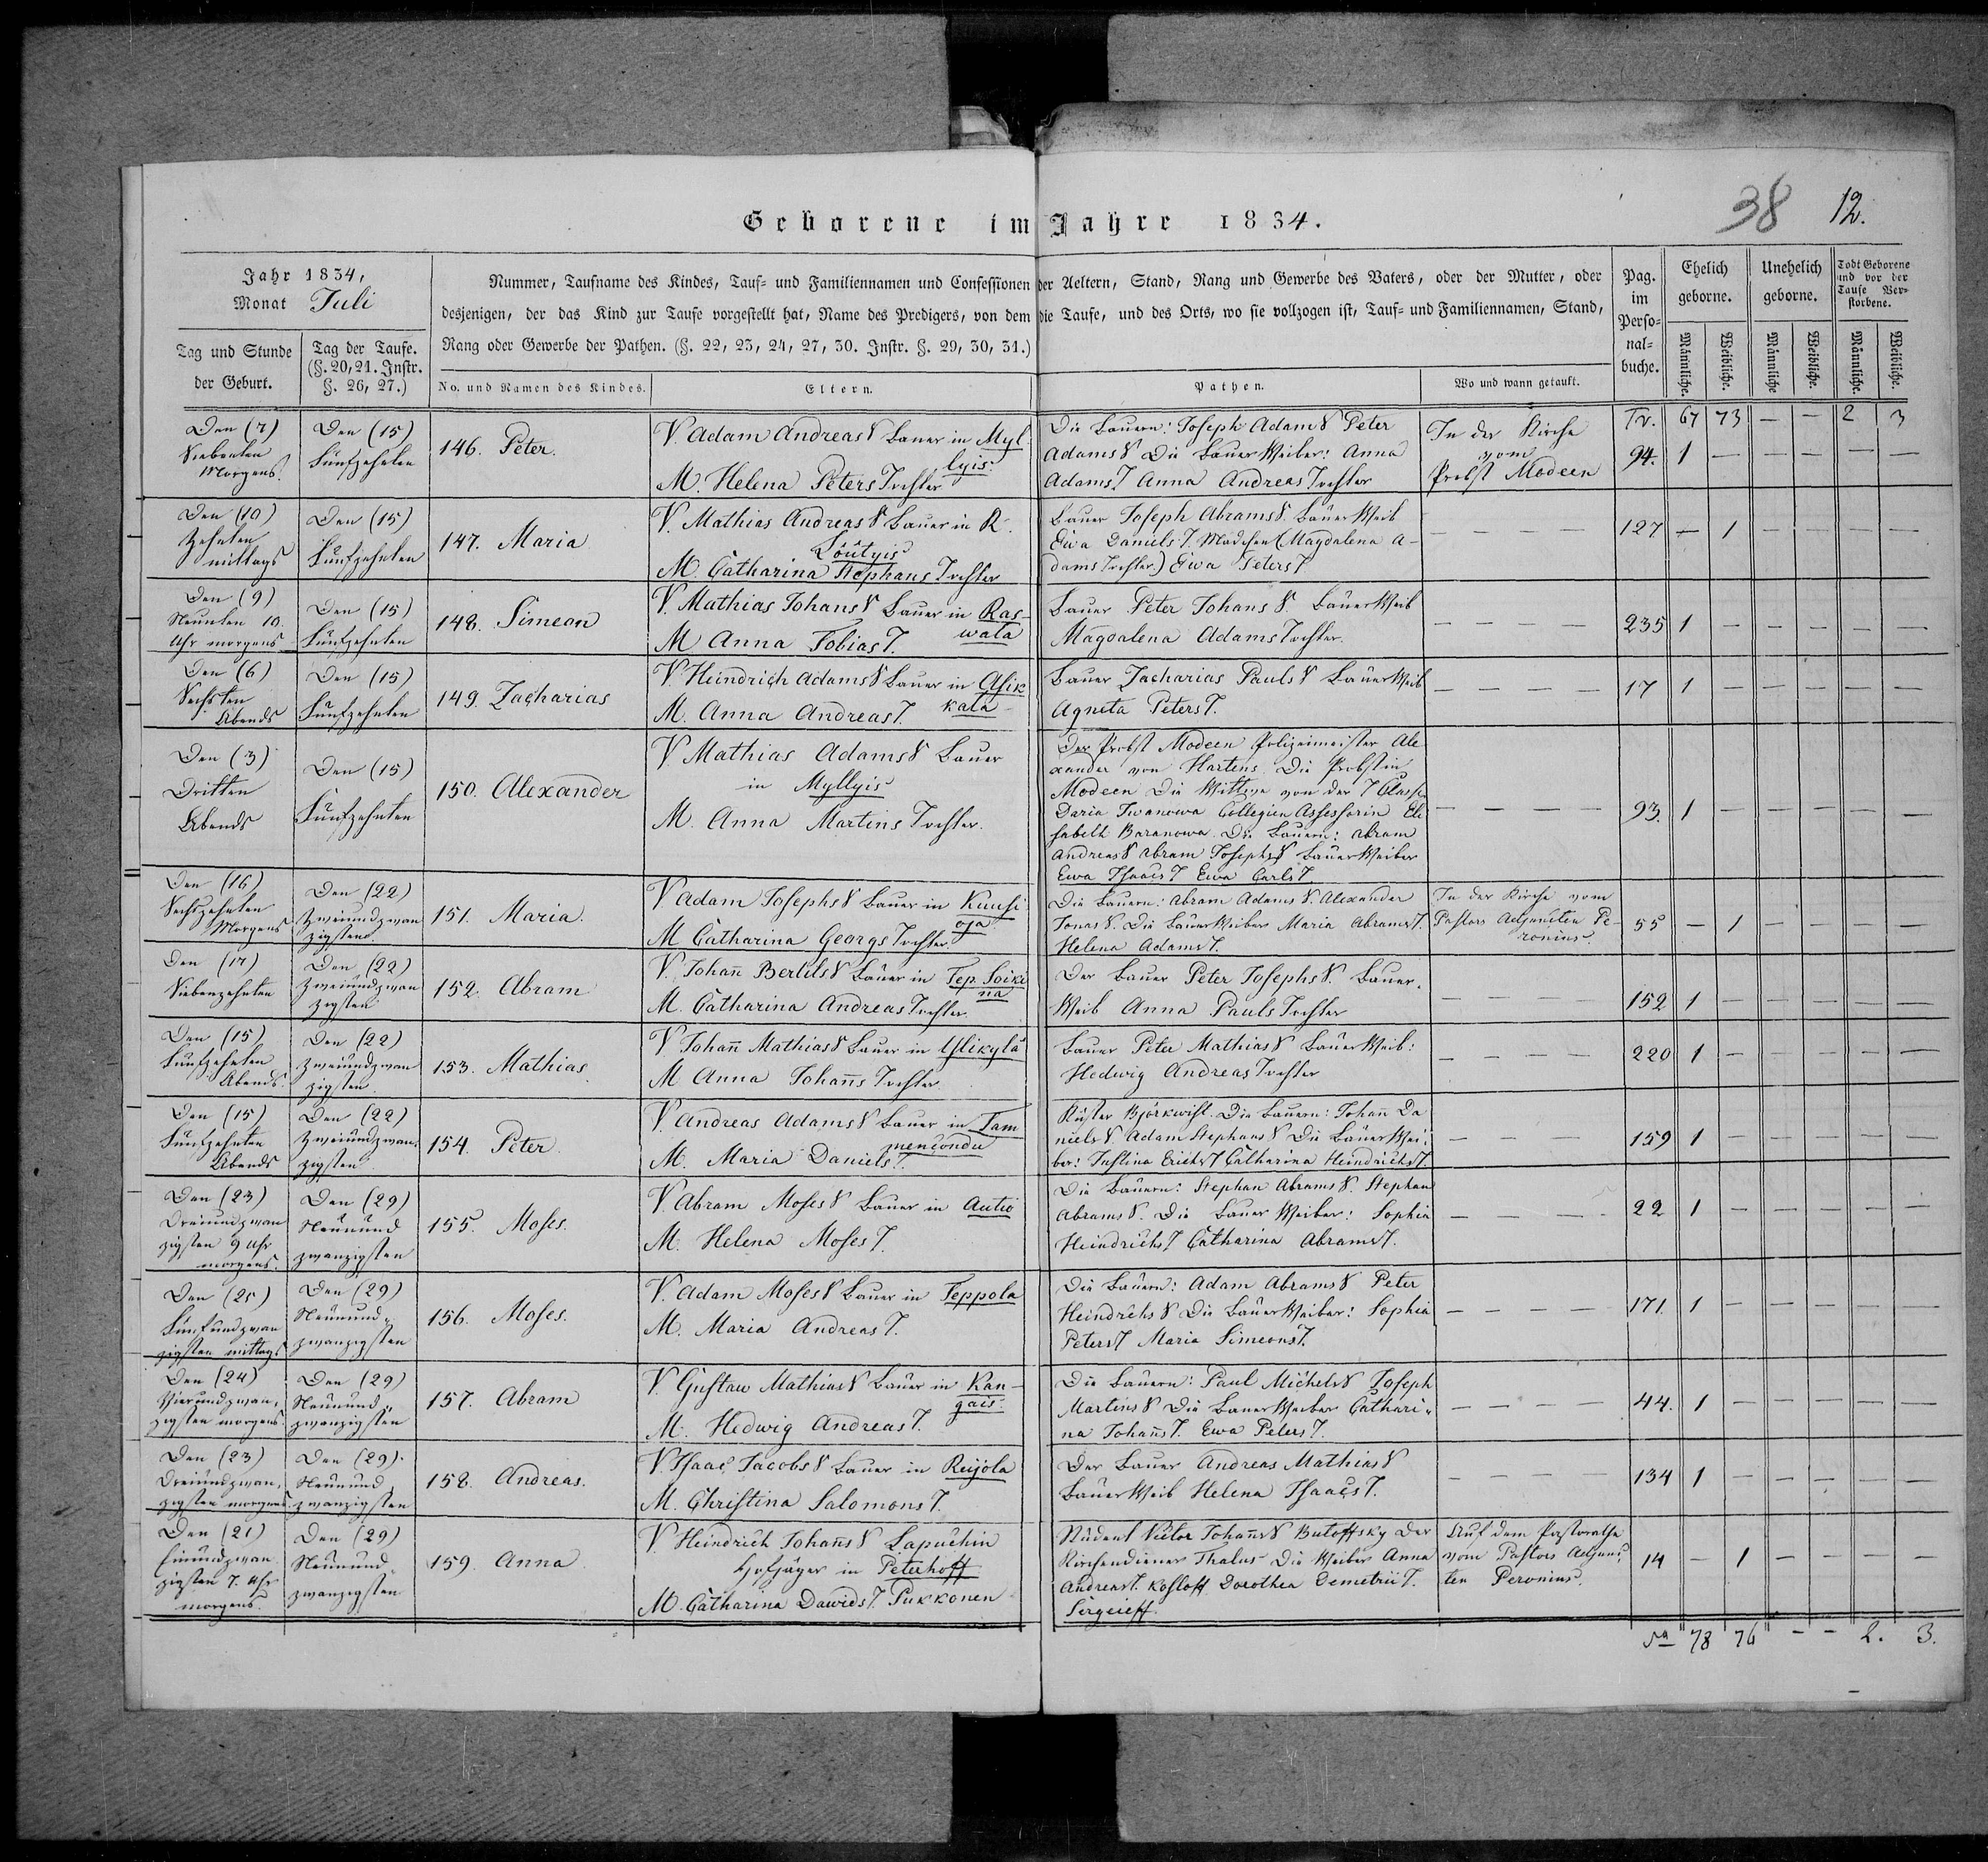 38 12.
Geborene im Jahre 1834.
Jahr 1834,
Monat Juli
Tag und Stunde
der Geburt.
Tag der Taufe.
(§. 20, 21. Instr.
§. 26, 27.)
Nummer, Taufname des Kindes, Tauf- und Familiennamen und Confessionen der Aeltern, Stand, Rang und Gewerbe des Vaters, oder der Mutter, oder
desjenigen, der das Kind zur Taufe vorgestellt hat, Name des Predigers, von dem die Taufe, und des Orts, wo sie vollzogen ist, Tauf- und Familiennamen, Stand,
Rang oder Gewerbe der Pathen. (§. 22, 23, 24, 27, 30. Instr. §. 29, 30, 31.)
No. und Namen des Kindes.
Eltern.
Pathen.
Wo und wann getauft.
Pag.
im
Perso=
nal=
buche.
Ehelich
geborne.
Unehelich
geborne.
Todt Geborene
und vor der
Taufe Ver=
storbene.
Männliche.
Weibliche.
Männliche
Weibliche.
Männliche.
Weibliche.
Tr. 67 73 — — 2 3
Den (7)
Siebenten
Morgens.
Den (15)
Fünfzehnten
146. Peter.
V. Adam Andreas S Bauer in Myl-
lyis.
M. Helena Peters Tochter
Die Bauern: Joseph Adams S Peter
Adams S Die Bauer Weiber: Anna
Adams T Anna Andreas Tochter
In der Kirche
vom
Probst Modeen
94. 1 — — — — —
Den (10)
Zehnten
mittags
Den (15)
Fünfzehnten
147. Maria
V. Mathias Andreas S Bauer in R.
Loutyis
M. Catharina Stephans Tochter
Bauer Joseph Abrams S. Bauer Weib
Ewa Daniels T. Mädchen (Magdalena A-
dams Tochter) Ewa Peters T
— — — —
127 — 1 — — — —
Den (9)
Neunten 10.
Uhr morgens
Den (15)
Fünfzehnten
148. Simeon
V. Mathias Johans S Bauer in Ras-
wata
M Anna Tobias T.
Bauer Peter Johans S. Bauer Weib
Magdalena Adams Tochter.
— — — —
235 1 — — — — —
Den (6)
Sechsten
Abends
Den (15)
Fünfzehnten
149. Zacharias
V. Heindrich Adams S Bauer in Asik
kala
M. Anna Andreas T.
Bauer Zacharias Pauls S Bauer Weib
Agneta Peters T.
— — — —
17 1 — — — — —
Den (3)
Dritten
Abends
Den (15)
Fünfzehnten
150. Alexander
V. Mathias Adams S Bauer
in Myllyis
M. Anna Martins Tochter.
Der Probst Modeen Polizeimeister Ale
xander von Hartens. Die Probstin
Modeen Die Wittwe von der 7 Classe
Daria Iwanowa Collegien Assessorin Eli
sabeth Baranowa. Die Bauern: Abram
Andreas S Abram Josephs S Bauer Weiber
Ewa Isaacs T Ewa Carls T
— — — —
93. 1 — — — — —
Den (16)
Sechszehnten
Morgens
Den (22)
Zweiundzwan
zigsten.
151. Maria.
V Adam Josephs S Bauer in Kuusi
oja
M Catharina Georgs Tochter.
Die Bauern: Abram Adams S. Alexander
Jonas S. Die Bauer Weiber Maria Abrams T.
Helena Adams T.
In der Kirche vom
Pastors Adjuncten Pe-
ronius.
55 — 1 — — — —
Den (17)
Siebenzehnten
Den (22)
Zweiundzwan
zigsten
152. Abram
V. Johañ Bertils S Bauer in Tep. Soiki
na
M. Catharina Andreas Tochter
Der Bauer Peter Josephs S. Bauer.
Weib Anna Pauls Tochter
— — — —
152 1 — — — — —
Den (15)
Fünfzehnten
Abends.
Den (22)
Zweiundzwan
zigsten
153. Mathias
V Johañ Mathias S Bauer in Ylikylä
M Anna Johañs Tochter
Bauer Peter Mathias S Bauer Weib:
Hedwig Andreas Tochter
— — — —
220 1 — — — — —
Den (15)
Fünfzehnten
Abends
Den (22)
Zweiundzwan.
zigsten
154. Peter
V. Andreas Adams S Bauer in Tam
mendondu
M. Maria Daniels T.
Küster Björkwist. Die Bauern: Johañ Da
niels S. Adam Stephans S Die Bauer Wei-
ber: Justina Erichs T Catharina Heindrichs T.
— —
159 1 — — — — —
Den (23)
Dreiundzwan
zigsten 9 Uhr
morgens.
Den (29)
Neunund
zwanzigsten
155. Moses.
V. Abram Moses S Bauer in Autio
M. Helena Moses T.
Die Bauern: Stephan Abrams S. Stephan
Abrams S. Die Bauer Weiber: Sophia
Heindrichs T Catharina Abrams T.
— — — —
22 1 — — — — —
Den (25)
Fünfundzwan
zigsten mittags
Den (29)
Neunund-
zwanzigsten
156. Moses.
V. Adam Moses S Bauer in Teppola
M. Maria Andreas T.
Die Bauern: Adam Abrams S Peter
Heindrichs S Die Bauer Weiber: Sophia
Peters T Maria Simeons T.
— — — —
171. 1 — — — — —
Den (24)
Vierundzwan-
zigsten morgens.
Den (29)
Neunund-
zwanzigsten
157. Abram
V. Gustaw Mathias S Bauer in Kan-
gais.
M. Hedwig Andreas T.
Die Bauern: Paul Michels S Joseph
Martins S Die Bauer Weiber Cathari-
na Johañs T. Ewa Peters T.
— — — —
44. 1 — — — — —
Den (23)
Dreiundzwan-
zigsten morgens.
Den (29).
Neunund
zwanzigsten
158. Andreas.
V. Isaac Jacobs S Bauer in Reijola
M. Christina Salomons T.
Der Bauer Andreas Mathias S
Bauer Weib Helena Isaacs T.
— — — —
134 1 — — — — —
Den (21)
Einundzwan
zigsten 7. Uhr
morgens.
Den (29)
Neunund-
zwanzigsten
159. Anna
V. Heindrich Johañs S Lapuchin
Hofjäger in Peterhoff
M. Catharina Dawids T. Pukkonen
Student Victor Johañs S Butoffsky Der
Kirchendiener Thalus Die Weiber Anna
Andreas T. Kosloff Dorothea Demetrii T.
Sergeieff.
Auf dem Pastorathe
vom Pastors Adjunc-
ten Peronius.
14 — 1 — — — —
Sa 78 76 — — 2. 3.